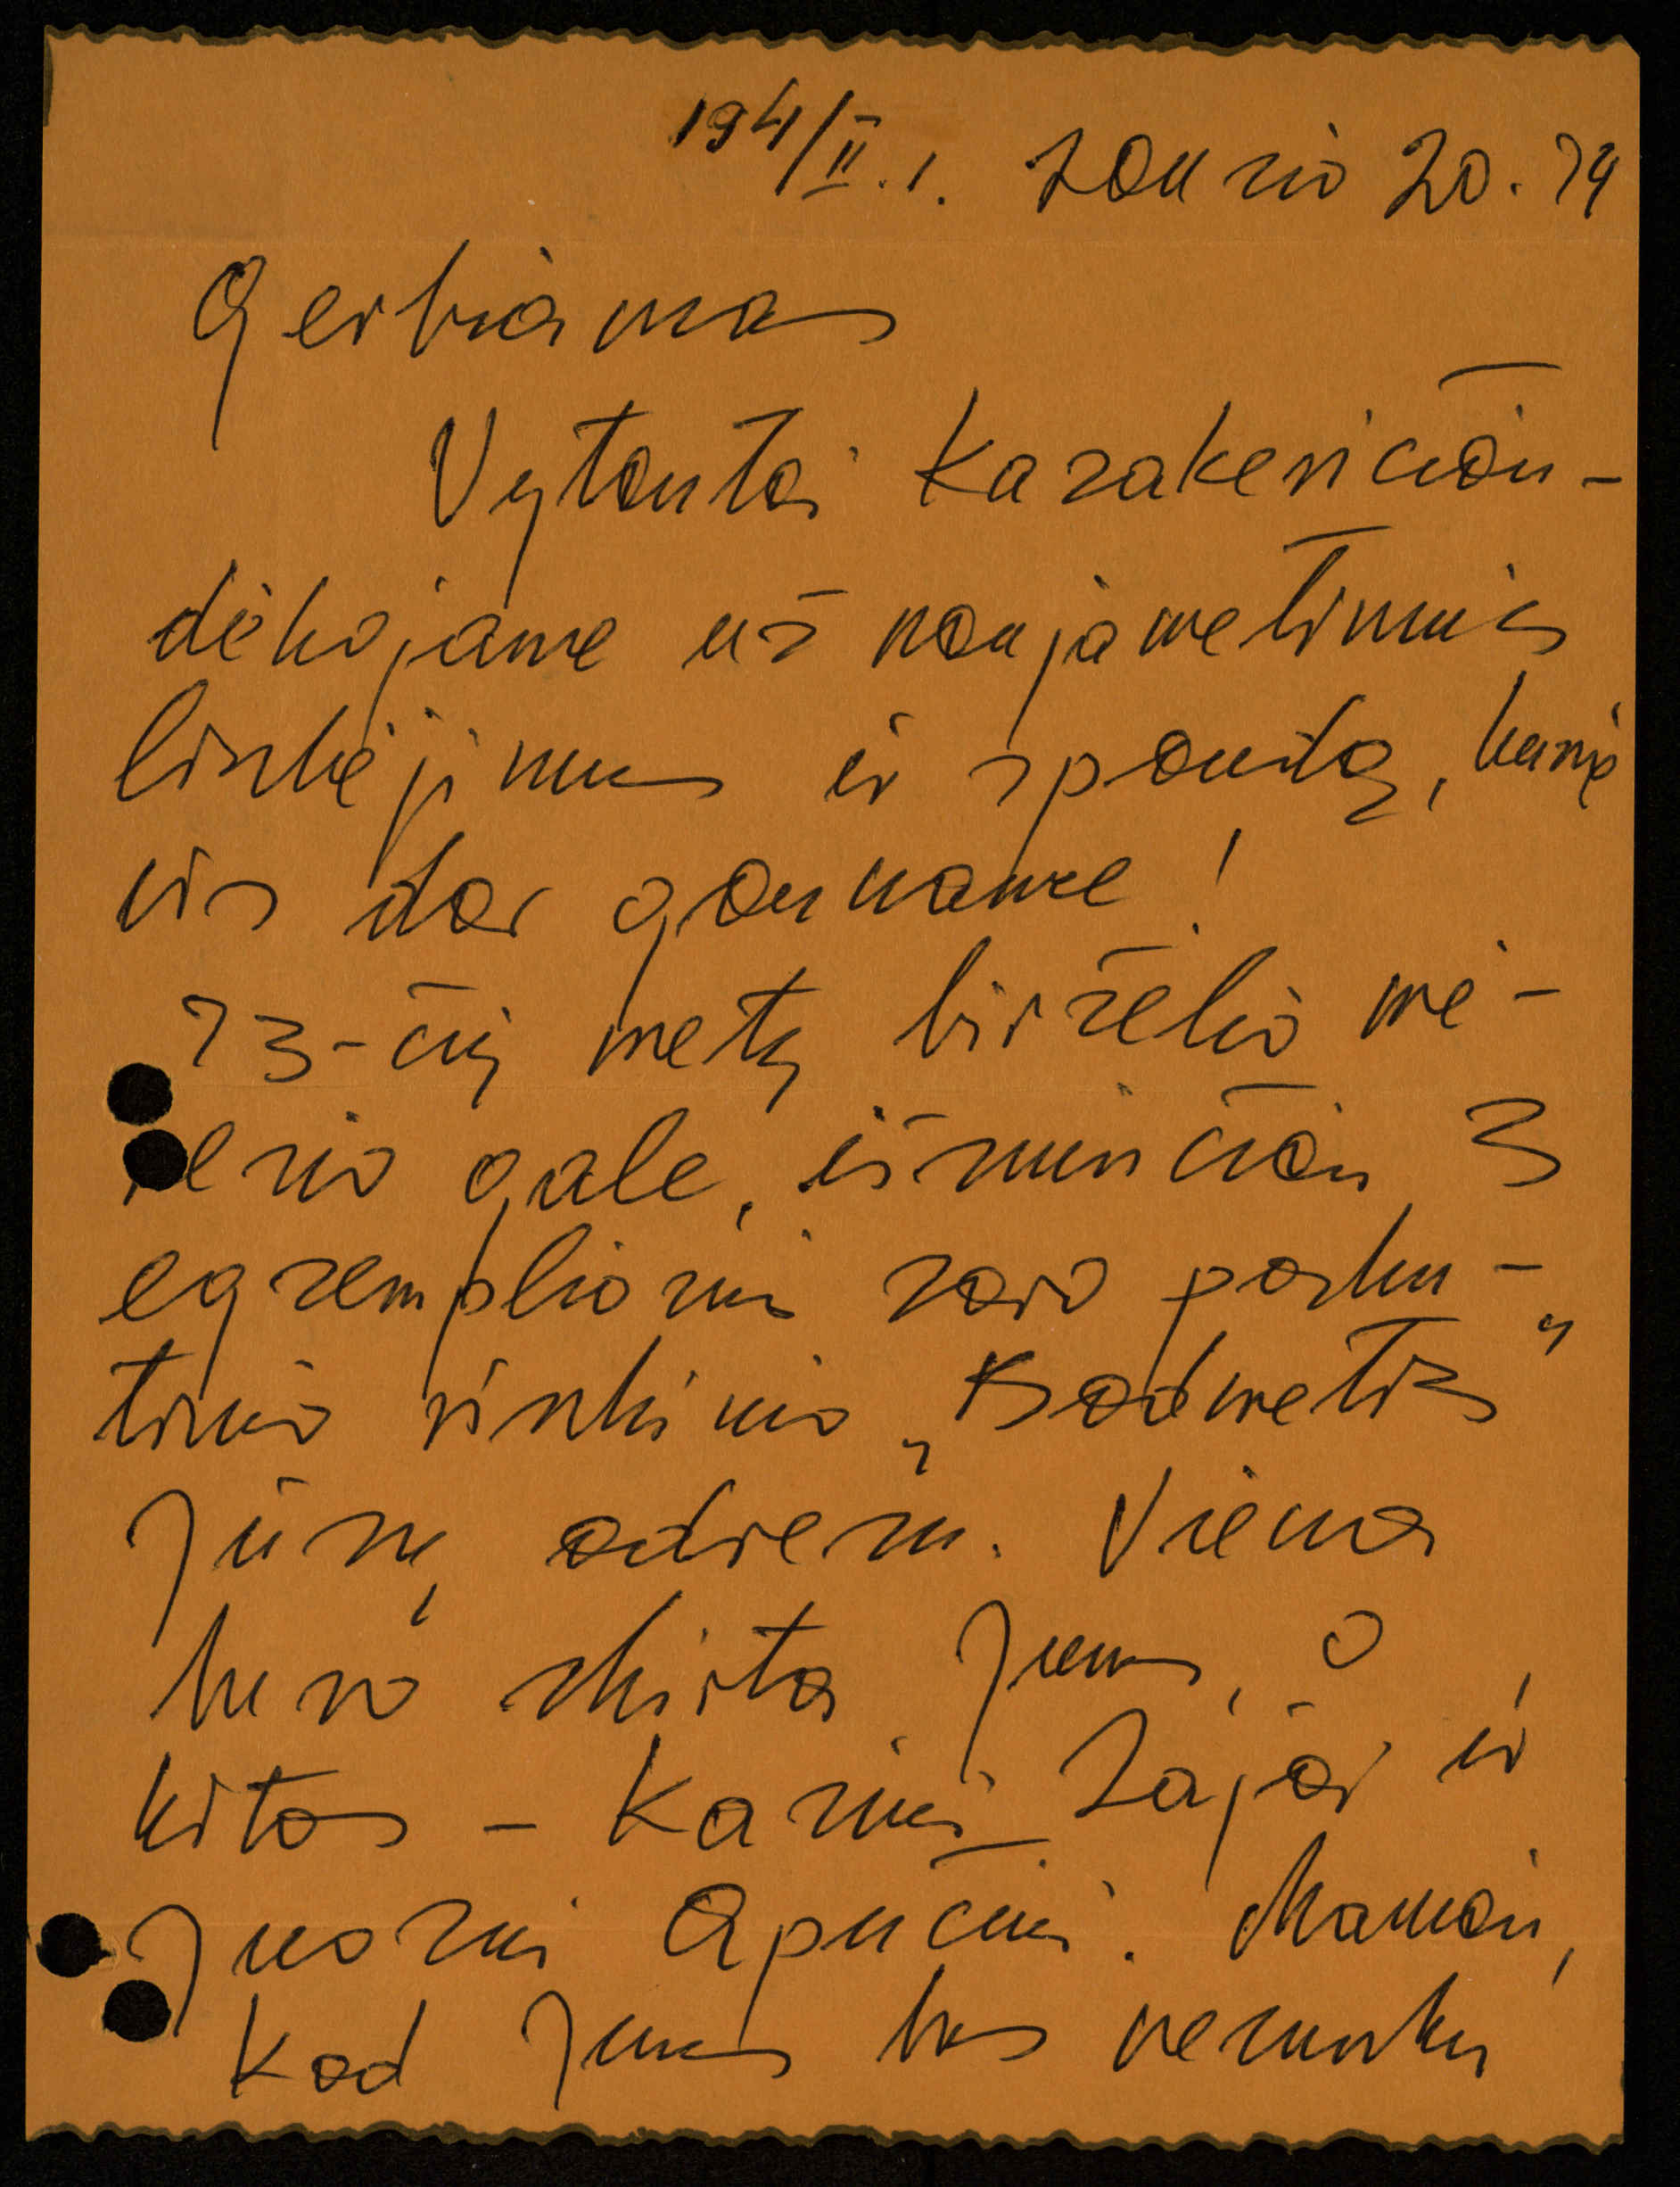 194/II.1. Sausio 20. 74
Gerbiamas
Vytautai Kazakevičiau -
dėkojame už naujametinius
linkėjimus ir spaudą, kurią
vis dar gauname!
73-čių metų birželio mė-
esio gale, išsiunčiau 3
egzempliorius savo posku-
tinio rinkinio „Badmetis"
Jūsų adresu. Viena
buvo skirta Jums, o
kitos - Kaziui Sajai ir
Juozui Apučiui. Manau,
kad Jums bus nesunku